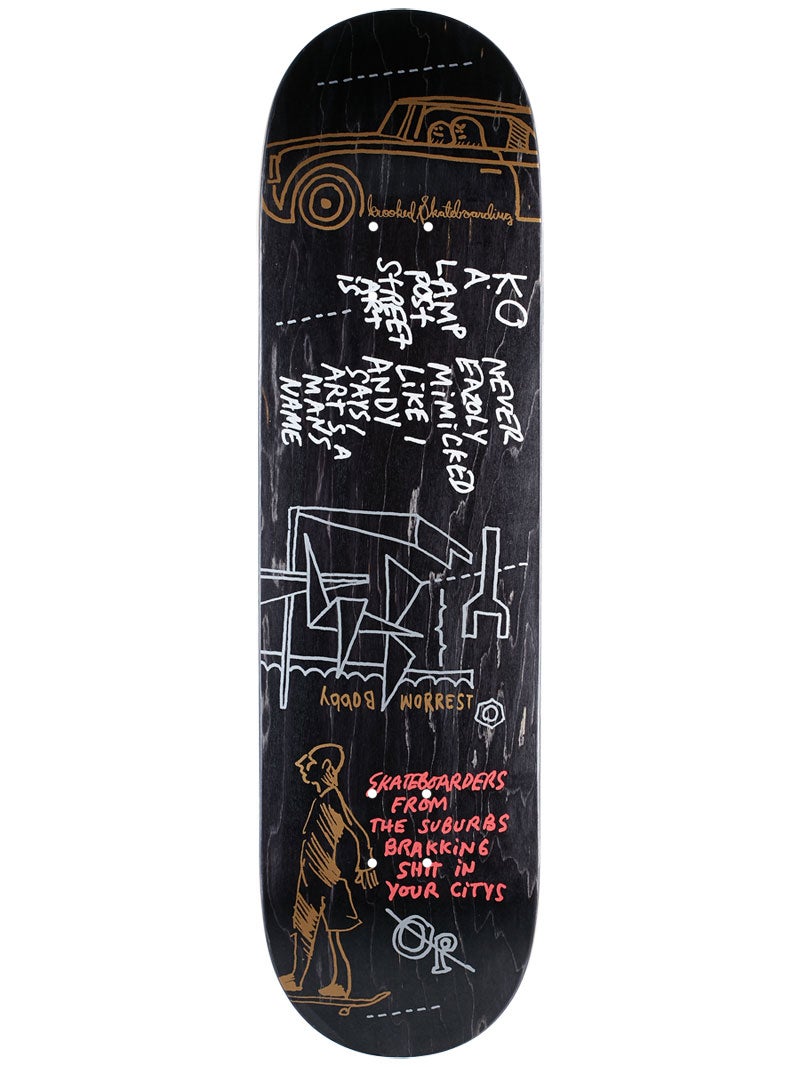 krooked Skateboarding
KO
A
LAMP
POST
STREET
IS ART
NEVER
EAZOLY
MIMICKED
LIKE I
ANDY
SAYS /
ART IS A
MANS
NAME
Bobby WORREST
SKATEBOARDERS
FROM
THE SUBURBS
BRAKKING
SHIT IN
YOUR CITYS